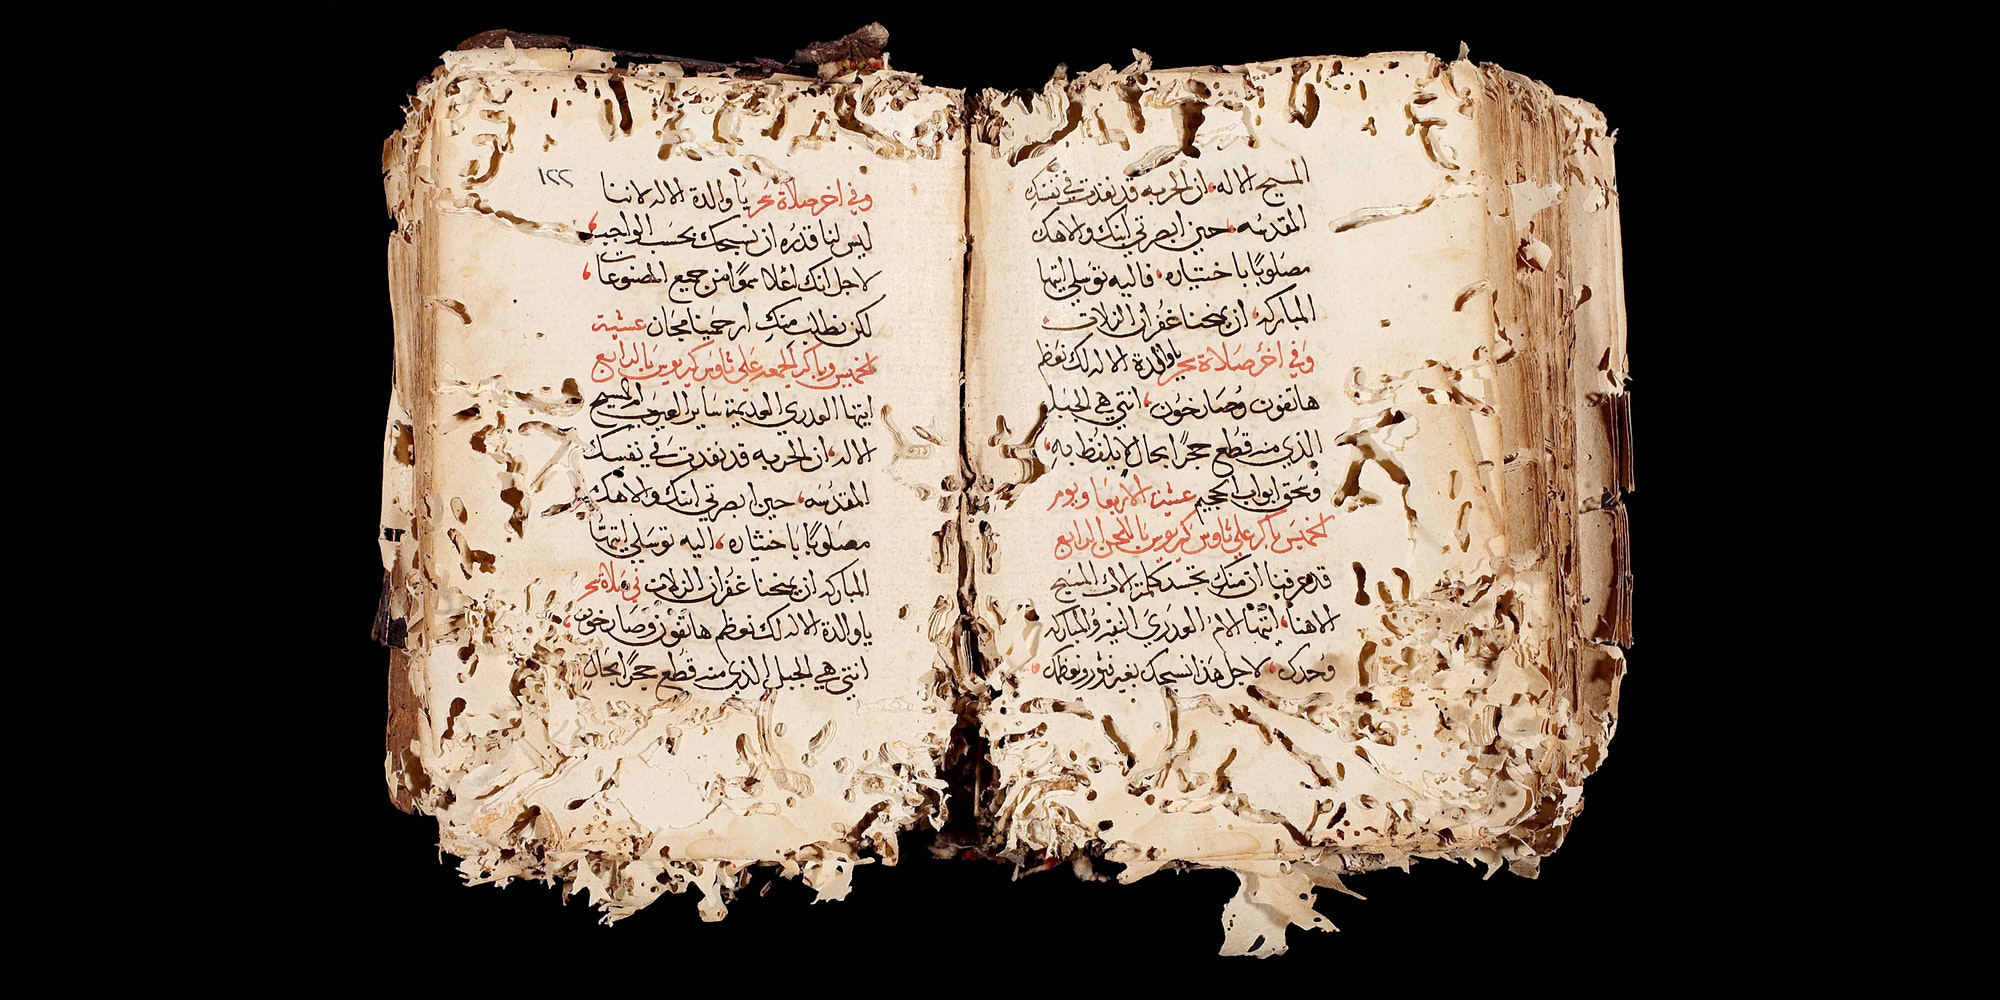 المسيح الاله، ان الحربه قد نفدت في نفسكِ
المقدسه، حين ابصرتي ابنك والاهك
مصلوبًا باختياره، فاليه توسلي ايتها
المباركه، ان يمنحنا غفران الزلات،
وفي اخر صلاة سحر ياوالدة الاله لك نعظم
هاتفون وصارخون، انتي هي الجبل
الذي منه قطع حجرًا بحال لا يلفظ بهِ،
وسحق ابواب الجحيم عشية الاربعا ويوم
الخميس باكر علي ثاوس كيريوس باللحن الرابع
قد عرفنا ان منك تجسد كلمة الاب المسيح
الاهنا، ايتها الام العدرى النقيه والمباركه
وحدك، لاجل هذا نسبحك بغير فتور ونعظمك،
١٢٢
وفي اخر صلاة سحر يا والدة الاله لاننا
ليس لنا قدره ان نسبحك بحسب الواجب،
لاجل انك اعلا سموًا من جميع المصنوعات،
لكن نطلب منكِ ارحمينا مجان عشية
الخميس وباكر الجمعه علي ثاوس كيريوس بالرابع
ايتها العدرى العديمة ساير العيوب ام المسيح
الاله، ان الحربه قد نفدت في نفسك
المقدسه، حين ابصرتي ابنك والاهك
مصلوبًا باختياره، اليه توسلي ايتها
المباركه ان يمنحنا غفران الزلات في صلاة سحر
ياوالدة الاله لك نعظم هاتفون وصارخون،
انتي هي الجبل الذي منه قطع حجرًا بحالٍ